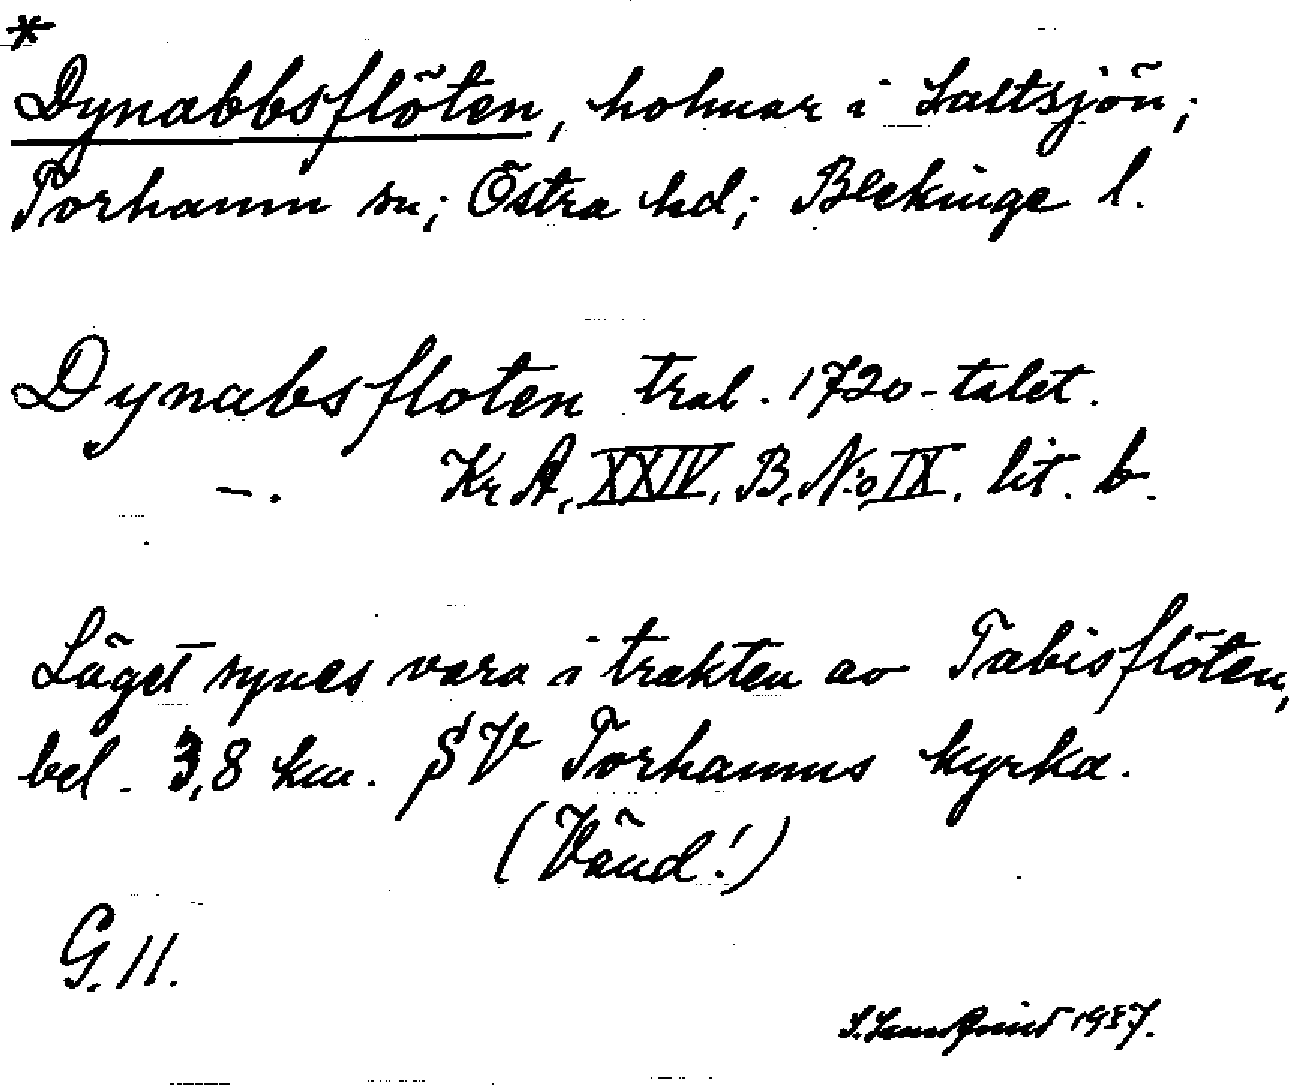 *
Dynabbsflöten, holmar i Saltsjön;
Torhamn sn; Östra hd; Blekinge l.
Dynabsfloten tral. 1720-talet.
—. Kr A, XXIV, B, No IX. lit. b.
Läget synes vara i trakten av Tabisflöten,
bel. 3,8 km. SV Torhamns kyrka.
(Vänd!)
G. 11.
1937.